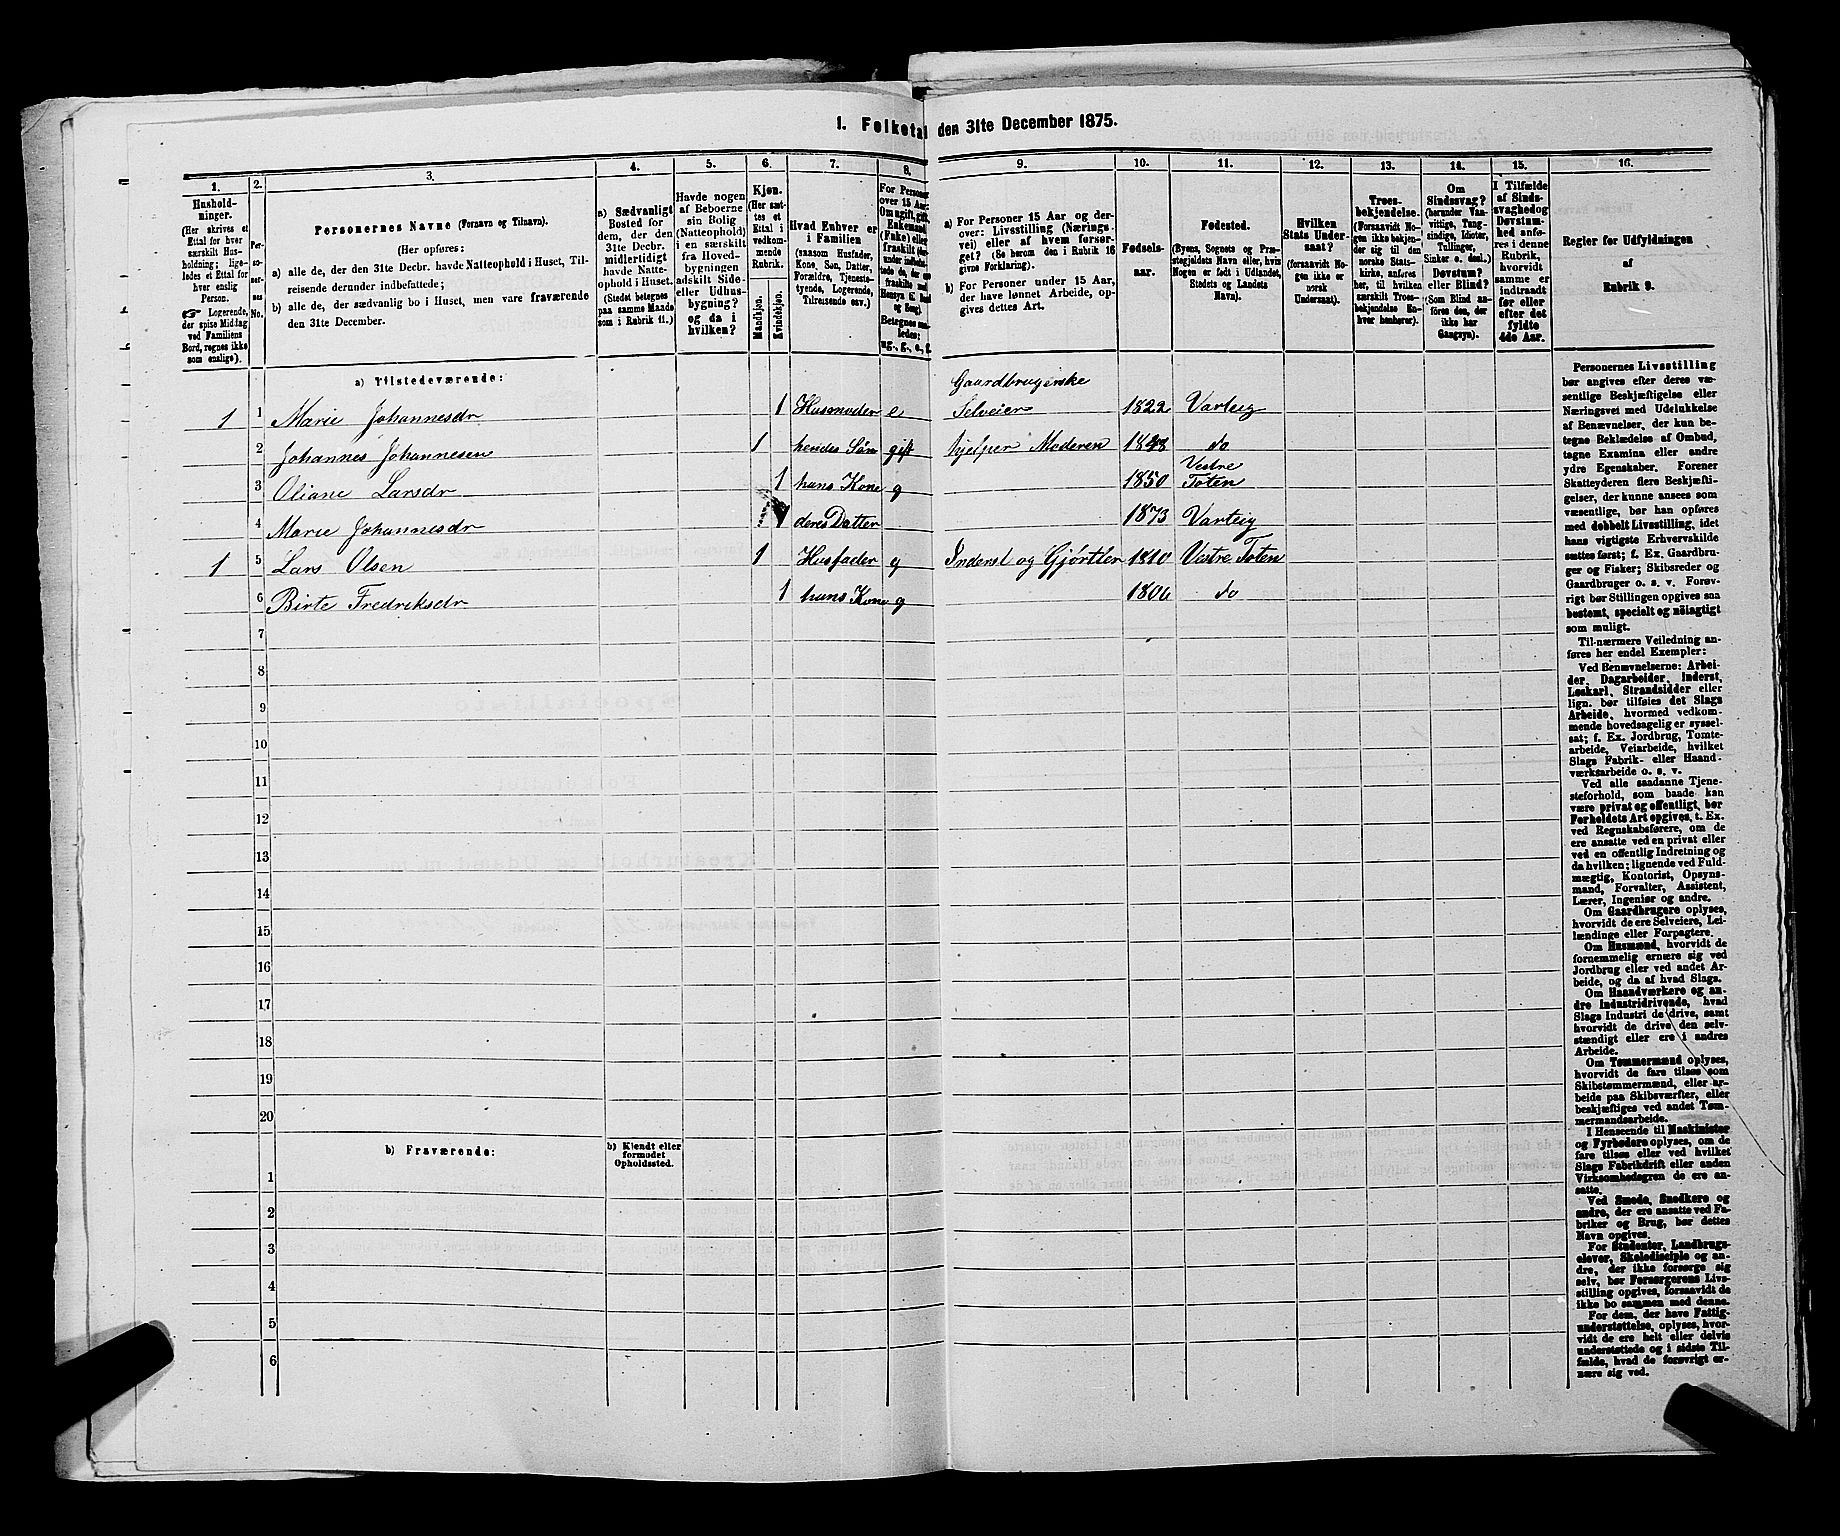 1. Folketal den 31te December 1875.
1. 2. 3. 4. 5. 6. 7. 8. 9. 10. 11. 12. 13. 14. 15. 16.
Hushold-
ninger.
(Her skrives et
Ettal for hver
særskilt Hus-
holdning; lige-
ledes et Ettal for
hver enslig
Person.
☞ Logerende,
der spise Middag
ved Familiens
Bord, regnes ikke
som enslige).
Per-
so-
ner-
nes
No.
Personernes Navne (Fornavn og Tilnavn).
(Her opføres:
a) alle de, der den 31te Decbr. havde Natteophold i Huset, Til-
reisende derunder indbefattede;
b) alle de, der sædvanlig bo i Huset, men vare fraværende
den 31te December.
a) Sædvanligt
Bosted for
dem, der den
31te Decbr.
midlertidigt
havde Natte-
ophold i Huset.
(Stedet betegnes
paa samme Maade
som i Rubrik 11.)
Havde nogen
af Beboerne
sin Bolig
(Natteophold)
i en særskilt
fra Hoved-
bygningen
adskilt Side-
eller Udhus-
bygning?
og da i
hvilken?
Kjøn.
(Her sæt-
tes et
Ettal i
vedkom-
mende
Rubrik.
Mandkjøn.
Kvindekjøn.
Hvad Enhver er
i Familien
(saasom Husfader,
Kone, Søn, Datter,
Forældre, Tjeneste-
tyende, Logerende,
Tilreisende osv.)
For Personer
over 15 Aar:
Om ugift, gift,
Enkemand
(Enke) eller
fraskilt
Betegnes saa-
ledes:
ug., g., e., f.
a) For Personer 15 Aar og der-
over: Livsstilling (Nærings-
vei) eller af hvem forsør-
get? (Se herom den i Rubrik 16
givne Forklaring).
b) For Personer under 15 Aar,
der have lønnet Arbeide, op-
gives dettes Art.
Fødsels-
aar.
Fødested.
(Byens, Sognets og Præ-
stegjeldets Navn eller, hvis
Nogen er født i Udlandet,
Stedets og Landets
Navn).
Hvilken
Stats Under-
saat?
(forsaavidt No-
gen ikke er
norsk
Undersaat).
Troes-
bekjendelse.
(Forsaavidt No-
gen ikke bekjen-
der sig til den
norske Stats-
kirke, anføres
her, til hvilken
særskilt Troes-
bekjendelse En-
hver henhører).
Om
Sindssvag?
(herunder Van-
vittige, Tung-
sindige, Idioter,
Tullinger,
Sinker o. desl.)
Døvstum?
eller Blind?
(Som Blind an-
føres den, der
ikke har
Gangsyn).
I Tilfælde
af Sinds-
svaghed og
Døvstum-
hed anfø-
res i denne
Rubrik,
hvorvidt
samme er
indtraadt
før eller
efter det
fyldte
4de Aar.
Regler for Udfyldningen
af
Rubrik 9.
a) Tilstedeværende:
Gaardbrugerske
1 1 Marie Johannesdr 1 Husmoder e Selveier 1822 Varteig
2 Johannes Johannesen 1 hendes Søn gift hjelper Moderen 1848 do
Vestre
3 Oliane Larsdr 1 hans Kone g 1850 Toten
4 Marie Johannesdr 1 deres Datter 1873 Varteig
1 5 Lars Olsen 1 Husfader g Inderst og Gjørtler 1810 Vestre Toten
6 Birte Fredriksdr 1 hans Kone g 1806 do
7
8
9
10
11
12
13
14
15
16
17
18
19
20
b) Fraværende:
b) Kjendt eller
formodet
Opholdssted.
1
2
3
4
5
6
Personernes Livsstilling
bør angives efter deres væ-
sentlige Beskjæftigelse eller
Næringsvei med Udelukkelse
af Benævnelser, der kun be-
tegne Beklædelse af Ombud,
tagne Examina eller andre
ydre Egenskaber. Forener
Skatteyderen flere Beskjæfti-
gelser, der kunne ansees som
væsentlige, bør han opføres
med dobbelt Livsstilling, idet
hans vigtigste Erhvervskilde
sættes først; f. Ex. Gaardbru-
ger og Fisker; Skibsreder og
Gaardbruger o. s. v. Forøv-
rigt bør Stillingen opgives saa
bestemt, specielt og nøiagtigt
som muligt.
Til nærmere Veiledning an-
føres her endel Exempler:
Ved Benævnelserne: Arbei-
der, Dagarbeider, Inderst,
Løskarl, Strandsidder eller
lign. bør tilføies det Slags
Arbeide, hvormed vedkom-
mende hovedsagelig er syssel-
sat; f. Ex. Jordbrug, Tomte-
arbeide, Veiarbeide, hvilket
Slags Fabrik- eller Haand-
værksarbeide o. s. v.
Ved alle saadanne Tjene-
steforhold, som baade kan
være privat og offentligt, bør
Forholdets Art opgives, t. Ex.
ved Regnskabsførere, om de
ere ansatte ved en privat eller
ved en offentlig Indretning og
da hvilken; lignende ved Fuld-
mægtig, Kontorist, Opsyns-
mand, Forvalter, Assistent,
Lærer, Ingeniør og andre.
Om Gaardbrugere oplyses,
hvorvidt de ere Selveiere, Lei-
lændinge eller Forpagtere.
Om Husmænd, hvorvidt de
fornemmelig ernære sig ved
Jordbrug eller ved andet Ar-
beide, og da af hvad Slags.
Om Haandværkere og an-
dre Industridrivende, hvad
Slags Industri de drive, samt
hvorvidt de drive den selv-
stændigt eller ere i andres
Arbeide.
Om Tømmermænd oplyses,
hvorvidt de fare tilsøs som
Skibstømmermænd, eller ar-
beide paa Skibsværfter, eller
beskjæftiges ved andet Tøm-
mermandsarbeide.
I Henseende til Maskinister
og Fyrbødere oplyses, om de
fare tilsøs eller ved hvilket
Slags Fabrikdrift eller anden
Virksomhedsgren de ere an-
satte.
Ved Smede, Snedkere og
andre, der ere ansatte ved Fa-
briker og Brug, bør dettes
Navn opgives.
For Studenter, Landbrugs-
elever, Skoledisciple og an-
dre, der ikke forsørge sig
selv, bør Forsørgerens Livs-
stilling opgives, forsaavidt de
ikke bo sammen med denne.
For dem, der have Fattig-
understøttelse, oplyses, hvor-
vidt de ere helt eller delvis
understøttede og i sidste Til-
fælde, hvad de forøvrigt er-
nære sig ved.